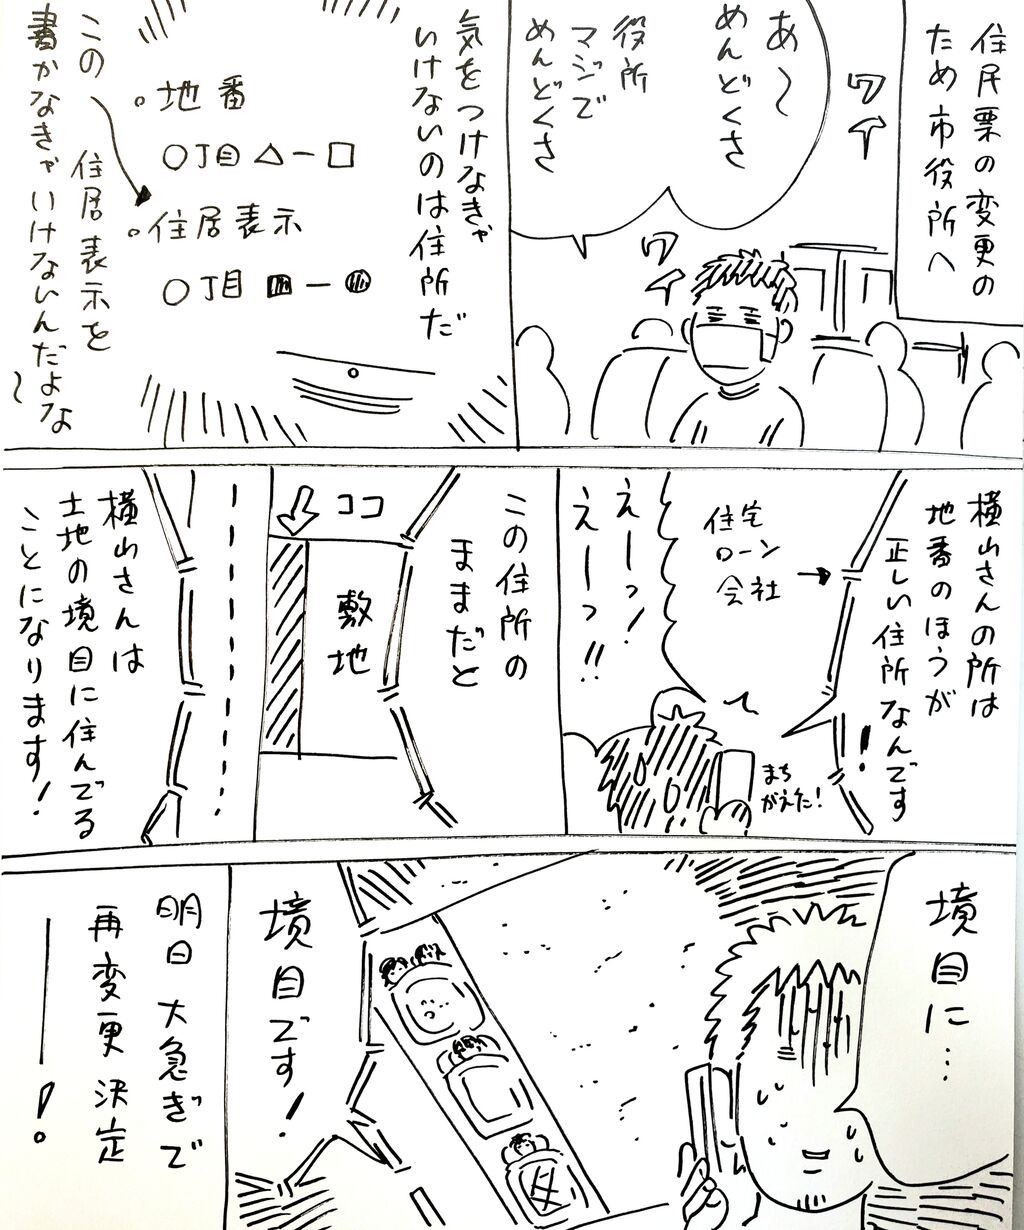 住民票の変更の
ため市役所へ
ワイ
あ〜
めんどくさ
役所
マジで
めんどくさ
ワイ
気をつけなきゃ
いけないのは住所だ
。地番
〇丁目△ー□
。住居表示
〇丁目■ー●
この
住居表示を
書かなきゃいけないんだよな〜
横山さんの所は
地番のほうが
正しい住所なんです!
住宅
ローン
会社
えーっ!
えーっ!!
まち
がえた!
この住所の
ままだと
ココ
敷地
横山さんは
土地の境目に住んでる
ことになります!
境目に…
境目です!
明日大急ぎで
再変更決定
ー!